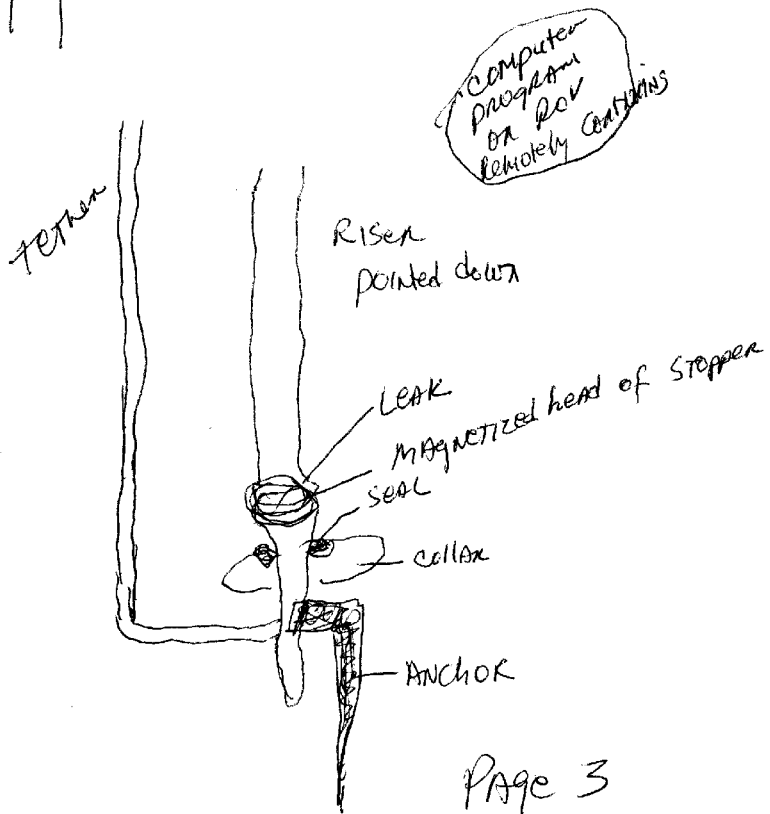 COMPUTER
PROGRAM
ON ROV
Remotely CONTAINS
TETHER
RISER
POINTED down
LEAK
MAGNETIZED head of STOPPER
SEAL
COLLAR
ANCHOR
PAGE 3